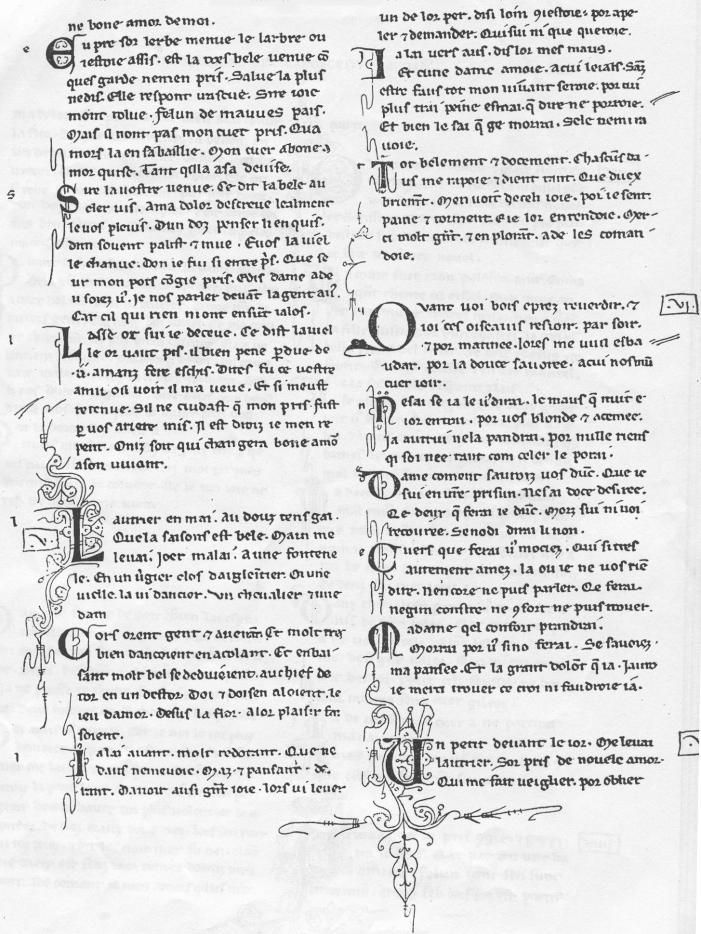 ne bone amor de moi.
e
Eu pre sor lerbe menue le larbre ou
iestoie assis. est la tres bele venue q̄
ques garde nemen pris. Salue la plus
nedis. Elle respont vascue. Sire
mont tolue. felun de mauves pais.
Mais il nont pas mon cuer pris. Qua
mors la en sa baillie. Mon cuer abone a
mor quise. Tant qlla asa devise.
s
Sire la vostre venue. Ce dit la bele au
cler vis. Ama dolor descreue lealment
le vos plevis. Dun doz penser lien quis.
dun sovent palist & mue. Evos la viel
le chanue. Don ie fui si entrep̄s. Que se
ur mon pors cōgie pris. Evis dame ade
u soiez u'. Je nos parler devāt la gent
Car cil qui rien niont ensūt ialos.
l
Lasse or sui ie deceue. Ce dist la viel
le or vaut pis. il bien pene p̱due de
.ii. amanz fere eschis. Dites fu ce vestre
amil osi voir il ma veue. Et si meust
retenue. Sil ne cuidast q̄ mon pris fust
p̱ vos ariere mis. Il est droiz ie men re
pent. Oniz soit qui changera bone amo
a son vivant.
l
Lautrier en mai. Au douz tens gai.
.V.
Que la saisons est bele. Main me
levai. Joer malai. A une fontene
le. En un v̄gier clos daiglētier. Oi une
vielle. la vi dancier. Un chevalier & une
dam
Cors orent gent & avenāt. Et molt tres
bien dancoient en acolant. Et en bai
sant molt bel se deduēient. au chief de
tor en un destor. Doi & doi sen aloient. le
ieu damor. Desus la flor. a lor plaisir fai
soient.
i
Jalai avant. molt redotant. Que ne
daus ne me voie. Maz & pansant. & de
irant. Davoir ausi grāt ioie. lors vi lever
un de lor per. disi loin gestoie. por ape
ler & demander. Qui sui ni que queroie.
i
Jalai vers aus. dis lor mes maus.
Et cune dame amoie. acui leials. Sāz
estre faus tot mon vivant seroie. por cui
plus trai peine & esmai. q̄ dire ne porroie.
Et bien le sai q̄ ge morrai. Sele nemira
voie.
t
Tot belement & docement. Chascūs da
us me rapoie & dient tant. Que diex
briemt. Men voit de celi ioie. por ie sent.
paine & torment. E ie lor en rendoie. Mer
ci molt grāt. & en plorāt. a de les coman
doie.
q
Qvant voi bois & prez reverdir. &
.VI.
ioi ces oiseaus resioir. par soir.
& por matinee. lores me vuil esba
udir. por la douce savoree. acui nosmū
cuer ioir.
n
Ne sai se ia le li dirai. le maus q̄ muir &
ior entrai. por vos blonde & acemee.
Ja autrui ne la pandrai. por nulle riens
qi soi nee tant com celer le porai.
d
Dame coment savroiz vos duc. Que ie
sui en vr̄e prisun. Ne sai doce desiree.
Ge deu q̄ ferai ie duc. Morz sui ni voi
recovree. Se nodi dirai li non.
c
Cuers que ferai u' mociez. Qui si tres
autement amez. la ou ie ne vos riē
dire. Nencore ne puis parler. Ge ferai.
negun confort ne 9fort ne puis trover.
Ma dame qel confort prandrai.
Morrai por u' sino ferai. Se savoiez.
ma pansee. Et la grant dolor q̄ ia. Jamo
ie merci trover ce croi ni faudroie ia.
Un petit devant le ior. Me levai
lautrier. Sor pris de novele amor.
Qui me fait veiglier. por oblier